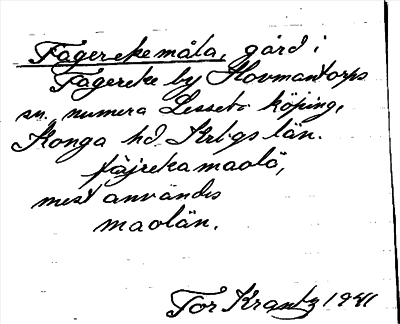 Fagerekemåla, gård i
Fagereke by Hovmantorps
sn. numera Lessebo köping,
Konga hd Krbgs län.
fäjrekamaolä,
mest användes
maolän.
Tor Krantz 1941